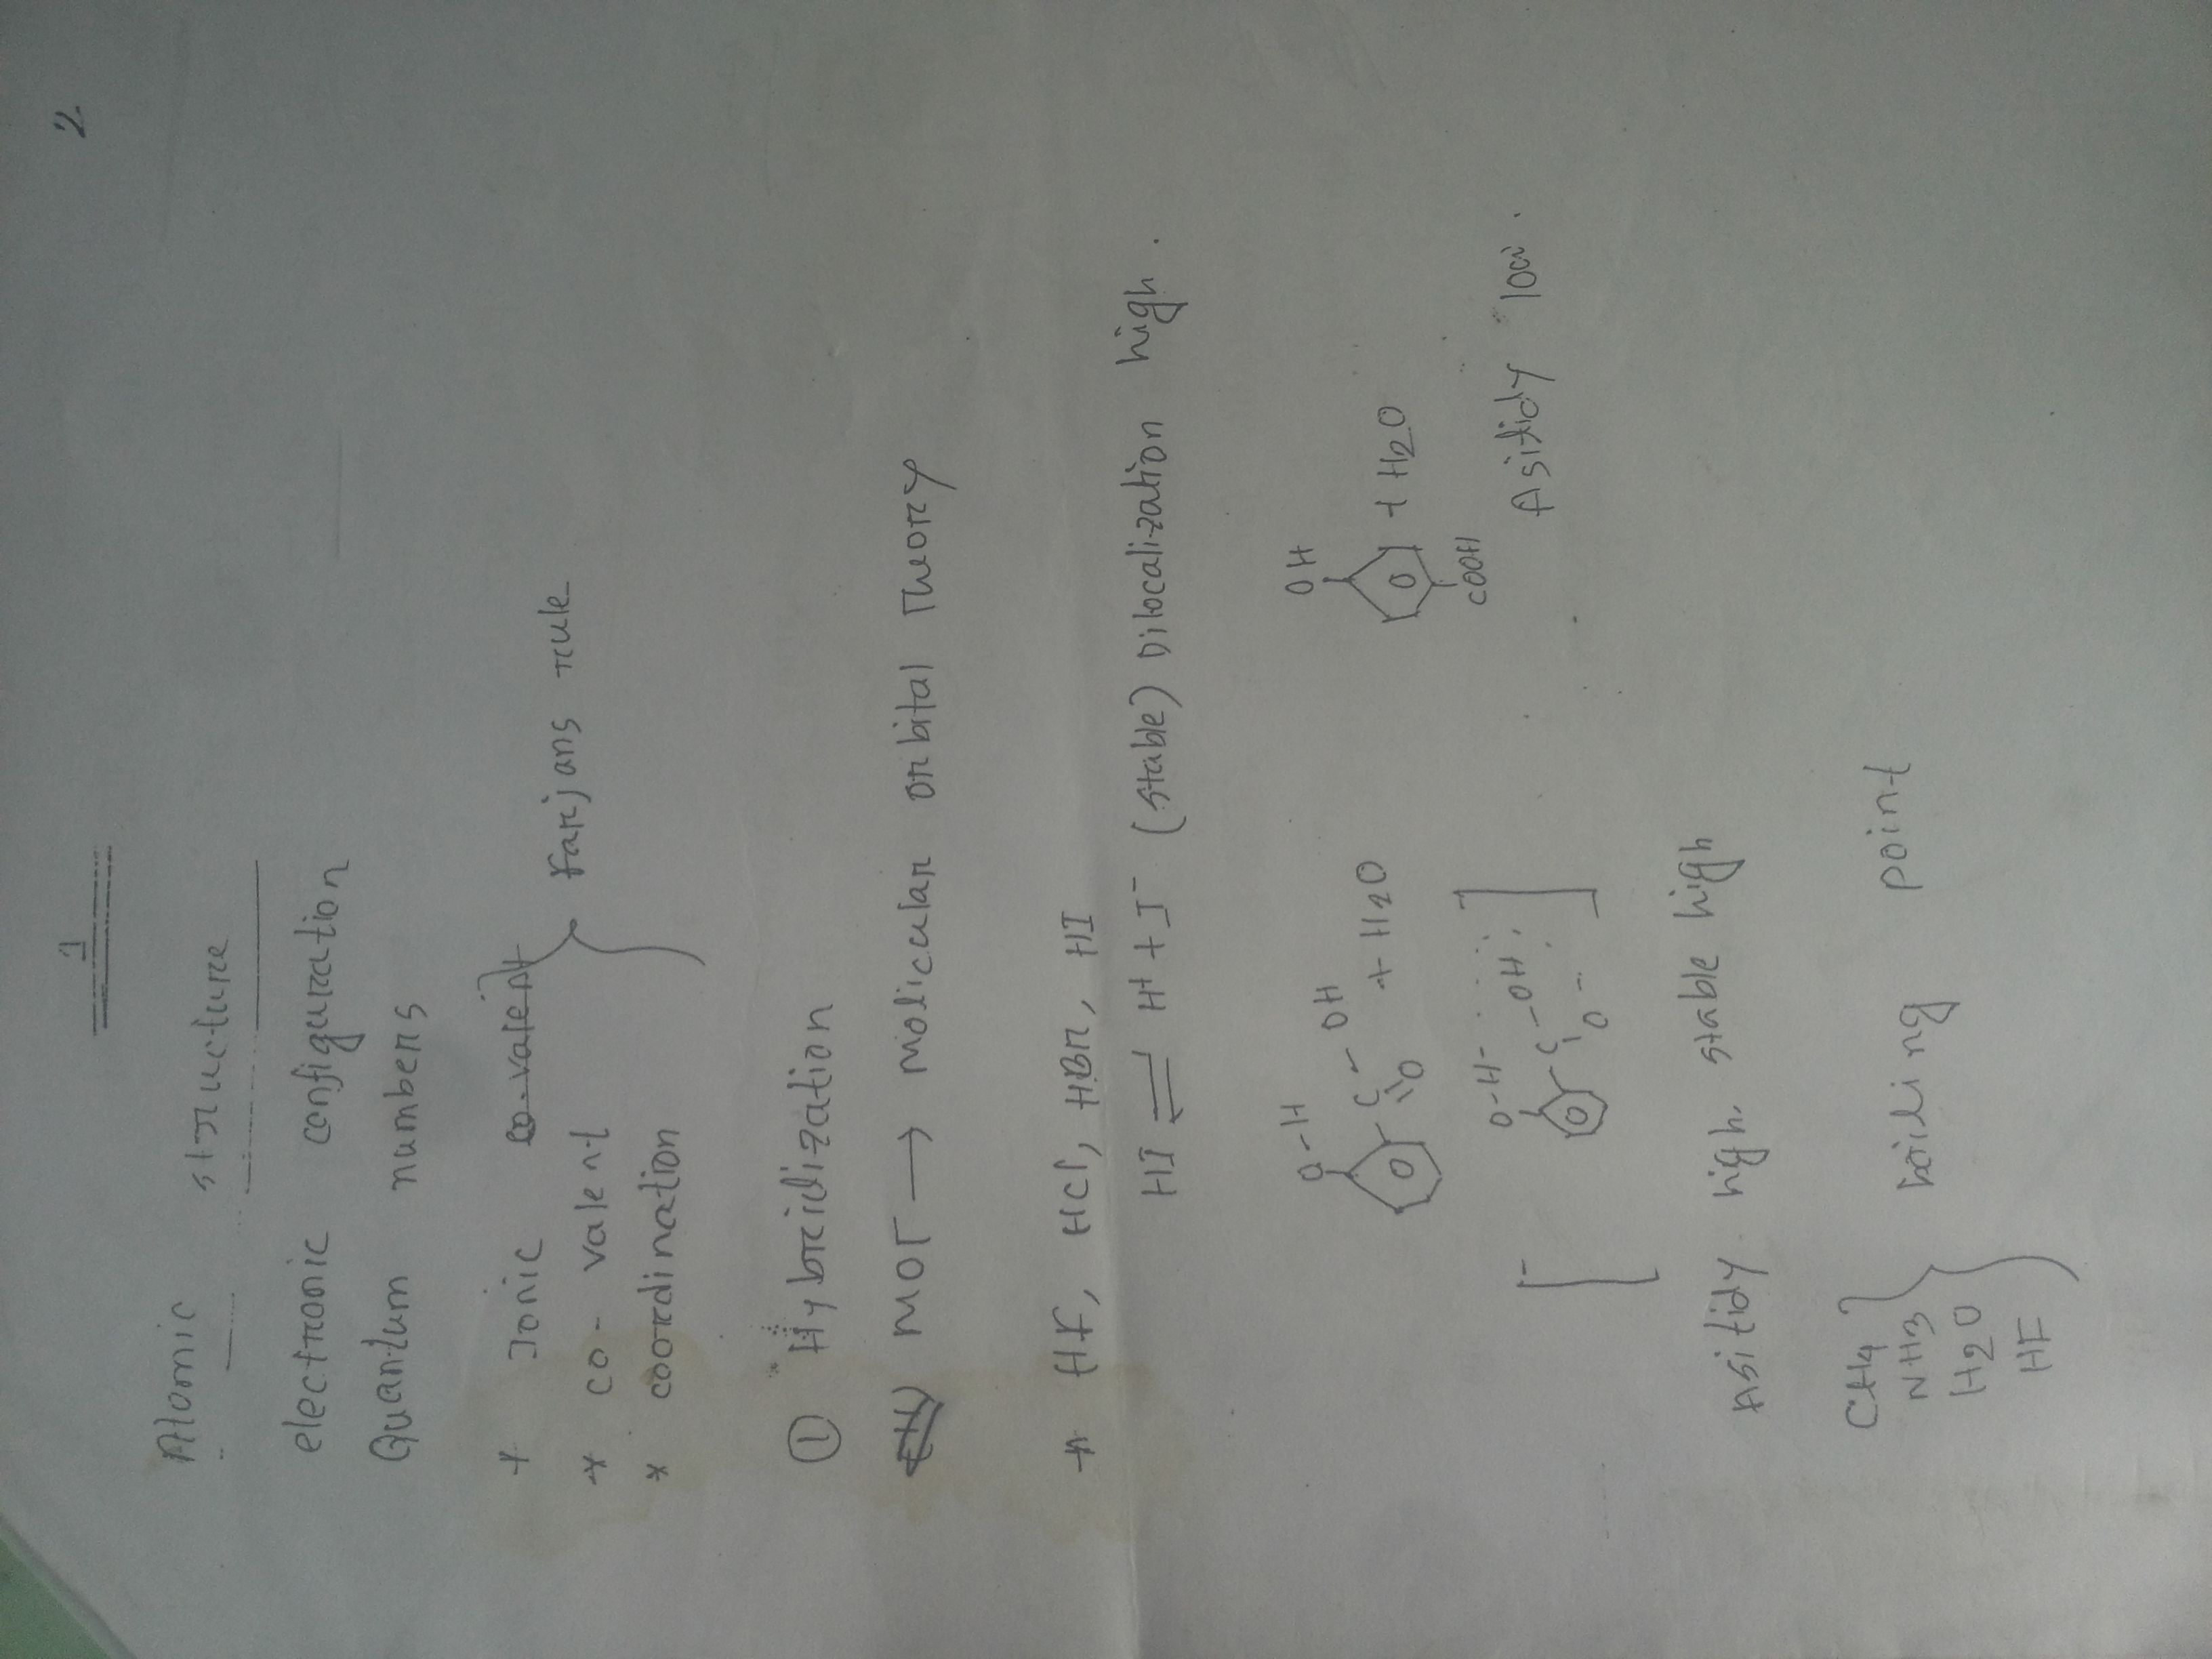 1
2
Atomic structure
electronic configuration
Quantum numbers
* Ionic co-valent
* co-valent
* coordination
Farjans rule
① Hybridization
MOT → Molicular orbital Theory
* HF, HCl, HBr, HI
HI ⇌ H+ + I- (stable) Dilocalization high.
O-H
C-OH
O
+ H2O
OH
O
+ H2O
COOH
O-H-
C-OH
O
O
Asitidy low.
Asitidy high. stable high
CH4
NH3
H2O
HF
boiling point